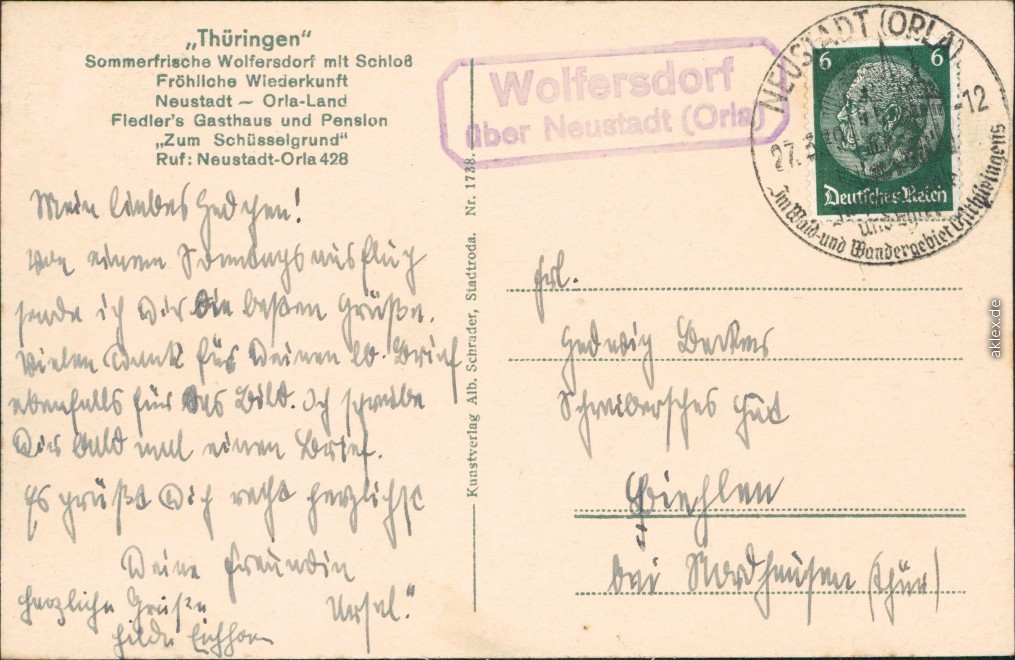 „Thüringen"
Sommerfrische Wolfersdorf mit Schloß
Fröhliche Wiederkunft
Neustadt – Orla-Land
Fiedler's Gasthaus und Pension
„Zum Schüsselgrund"
Ruf: Neustadt-Orla 428
Mein liebes Hedchen!
Von einem Sonntagsausflug
sende ich Dir die besten Grüße.
Vielen Dank für Deinen lb. Brief
ebenfalls für das Bild. Ich schreibe
Dir bald mal einen Brief.
Es grüßt Dich recht herzlichst
Deine Freundin
Ursel."
herzliche Grüße
Hilde Eichhorn
Kunstverlag Alb. Schrader, Stadtroda. Nr. 1738.
Wolfersdorf
über Neustadt (Orla)
NEUSTADT (ORLA)
27. -12
Im Wald-und Wandergebiet Ostthüringens
6 6
Deutsches Reich
Frl.
Hedwig
Schreibersches Gut
bei Nordhausen (Thür)
aklex.de